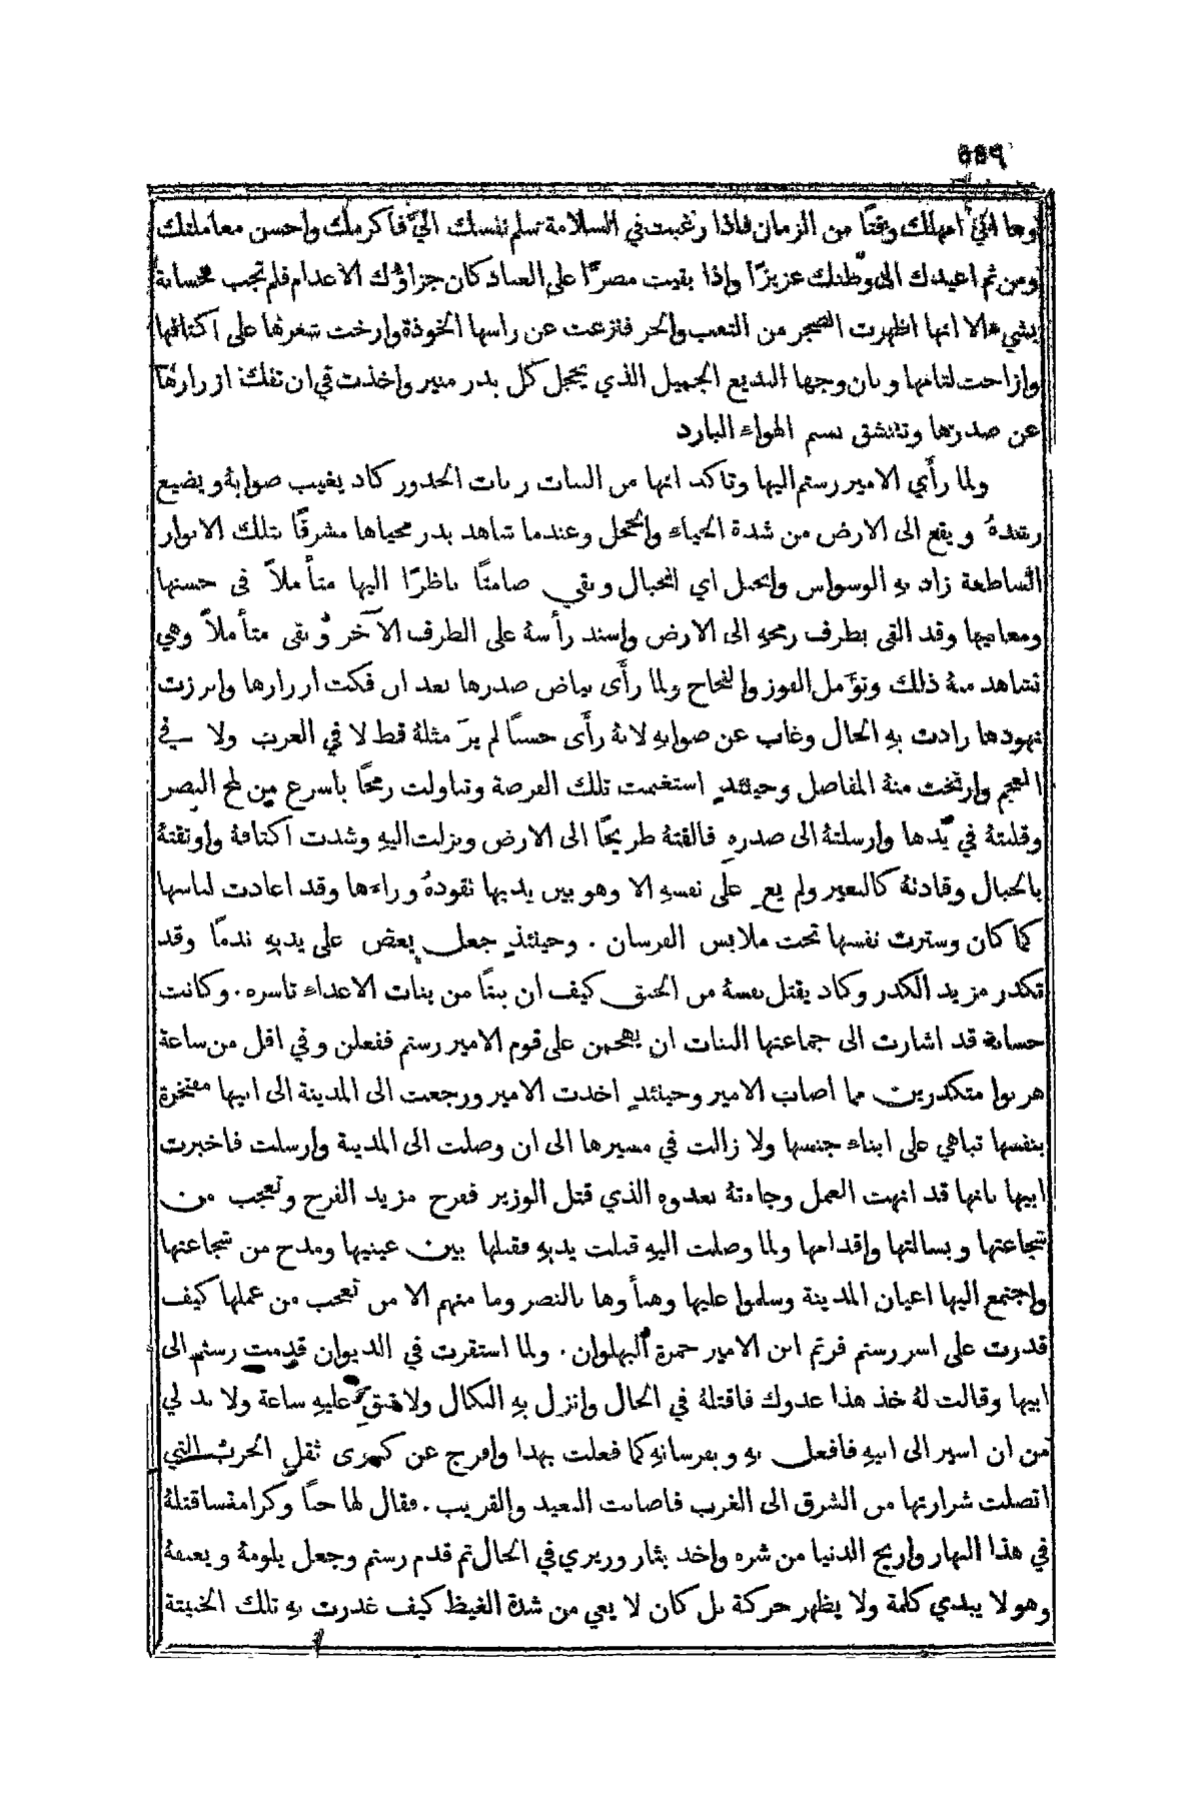 ٥٤٩
وها اني امهلك وقتًا من الزمان فاذا رغبت في السلامة تسلم نفسك اليَّ فاكرمك واحسن معاملتك
ومن ثم اعيدك الى وطنك عزيزًا واذا بقيت مصرًّا على العناد كان جزاؤُك الاعدام فلم تجب حسانة
بشيءٍ الا انها اظهرت الضجر من التعب والحر فنزعت عن راسها الخوذة وارخت شعرها على اكتافها
وازاحت لثامها وبان وجهها البديع الجميل الذي يخجل كل بدر منير واخذت في ان تفك ازرارها
عن صدرها وتتنشق نسم الهواء البارد
ولما رأَي الامير رستم اليها وتاكد انها من البنات ربات الخدور كاد يغيب صوابهُ ويضيع
رشدهُ ويقع الى الارض من شدة الحياء والخجل وعندما شاهد بدر محياها مشرقًا بتلك الانوار
الساطعة زاد بهِ الوسواس وانخبل اي انخبال وبقي صامتًا ناظرًا اليها متأملاً في حسنها
ومعانيها وقد القى بطرف رمحهِ الى الارض واسند رأسهُ على الطرف الآخر وبقى متأملاً وهي
تشاهد منهُ ذلك وتؤَمل الفوز والنجاح ولما رأَى بياض صدرها بعد ان فكت ازرارها وابرزت
نهودها زادت بهِ الحال وغاب عن صوابهِ لانهُ رأَى حسنًا لم يرَ مثلهُ قط لا في العرب ولا في
العجم وارتخت منهُ المفاصل وحينئذٍ استغنمت تلك الفرصة وتناولت رمحًا باسرع من لمح البصر
وقلبتهُ في يدها وارسلتهُ الى صدرهِ فالقتهُ طريحًا الى الارض ونزلت اليهِ وشدت اكتافهُ واوثقتهُ
بالحبال وقادتهُ كالبعير ولم يعِ على نفسهِ الا وهو بين يديها تقودهُ وراءها وقد اعادت لباسها
كما كان وسترت نفسها تحت ملابس الفرسان . وحينئذٍ جعل يعض على يديهِ ندمًا وقد
تكدر مزيد الكدر وكاد يقتل نفسهُ من الحنق كيف ان بنتًا من بنات الاعداء تاسره . وكانت
حسانة قد اشارت الى جماعتها البنات ان يهجمن على قوم الامير رستم ففعلن وفي اقل من ساعة
هربوا متكدرين مما اصاب الامير وحينئذٍ اخذت الامير ورجعت الى المدينة الى ابيها مفتخرة
بنفسها تباهي على ابناء جنسها ولا زالت في مسيرها الى ان وصلت الى المدينة وارسلت فاخبرت
ابيها بانها قد انهت العمل وجاءتهُ بعدوه الذي قتل الوزير ففرح مزيد الفرح وتعجب من
شجاعتها وبسالتها واقدامها ولما وصلت اليهِ قبلت يديهِ فقبلها بين عينيها ومدح من شجاعتها
واجتمع اليها اعيان المدينة وسلموا عليها وهنأوها بالنصر وما منهم الا من تعجب من عملها كيف
قدرت على اسر رستم فرتم ابن الامير حمزة البهلوان . ولما استقرت في الديوان قدمت رستم الى
ابيها وقالت لهُ خذ هذا عدوك فاقتلهُ في الحال وانزل بهِ النكال ولا تبقِ عليهِ ساعة ولا بد لي
من ان اسير الى ابيهِ فافعل بهِ وبفرسانهِ كما فعلت بهذا وافرج عن كسرى ثقل الحرب التي
اتصلت شرارتها من الشرق الى الغرب فاصابت البعيد والقريب . فقال لها حبًا وكرامة ساقتلهُ
في هذا النهار واريح الدنيا من شره واخذ بثار وزيري في الحال ثم قدم رستم وجعل يلومهُ ويعنفهُ
وهو لا يبدي كلمة ولا يظهر حركة بل كان لا يعي من شدة الغيظ كيف غدرت بهِ تلك الخبيثة